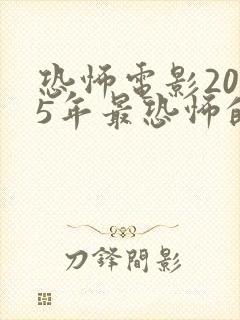 恐怖電影20
5年最恐怖的
刀鋒間影